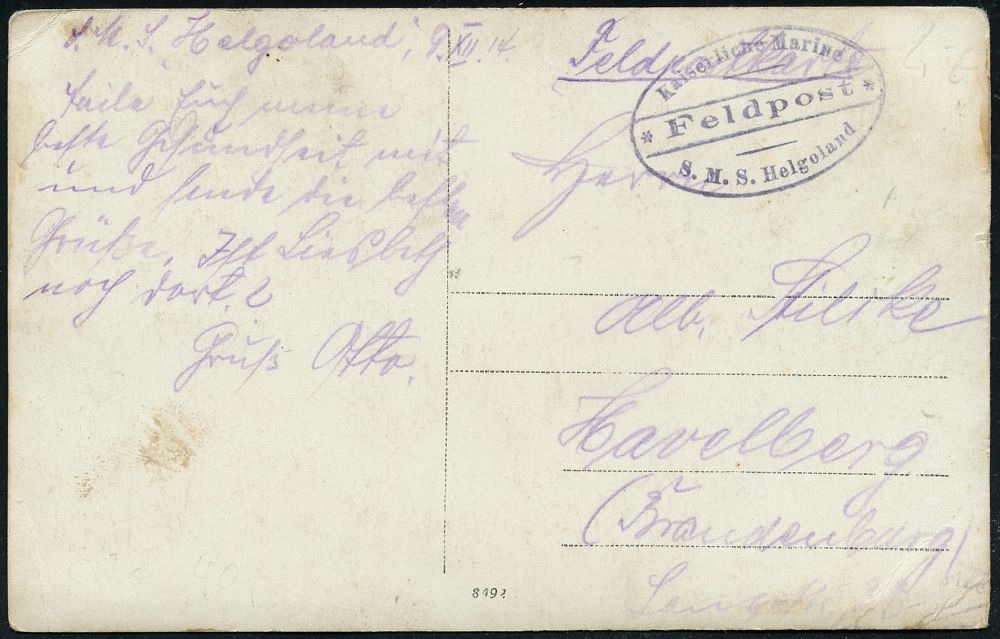 S. M. S. "Helgoland", 9. XII. 14
teile Euch meine
beste Gesundheit mit
und sende die besten
Grüße. Ist Liesbeth
noch dort?
Gruß Otto.
Feldpostkarte
Kaiserliche Marine
* Feldpost *
S. M. S. Helgoland
Herrn
Alb.
Havelberg
(Brandenburg)